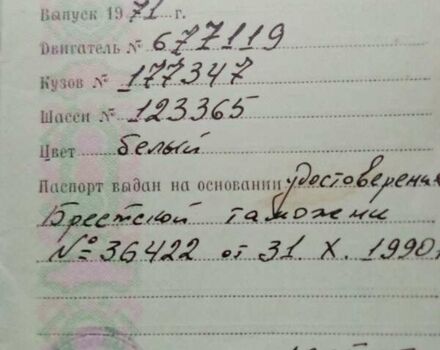 Выпуск 1971 г.
Двигатель № 677119
Кузов № 177347
Шасси № 123365
Цвет белый
Паспорт выдан на основании удостоверения
Брестской таможни
№ 36422 от 31. X. 1990г